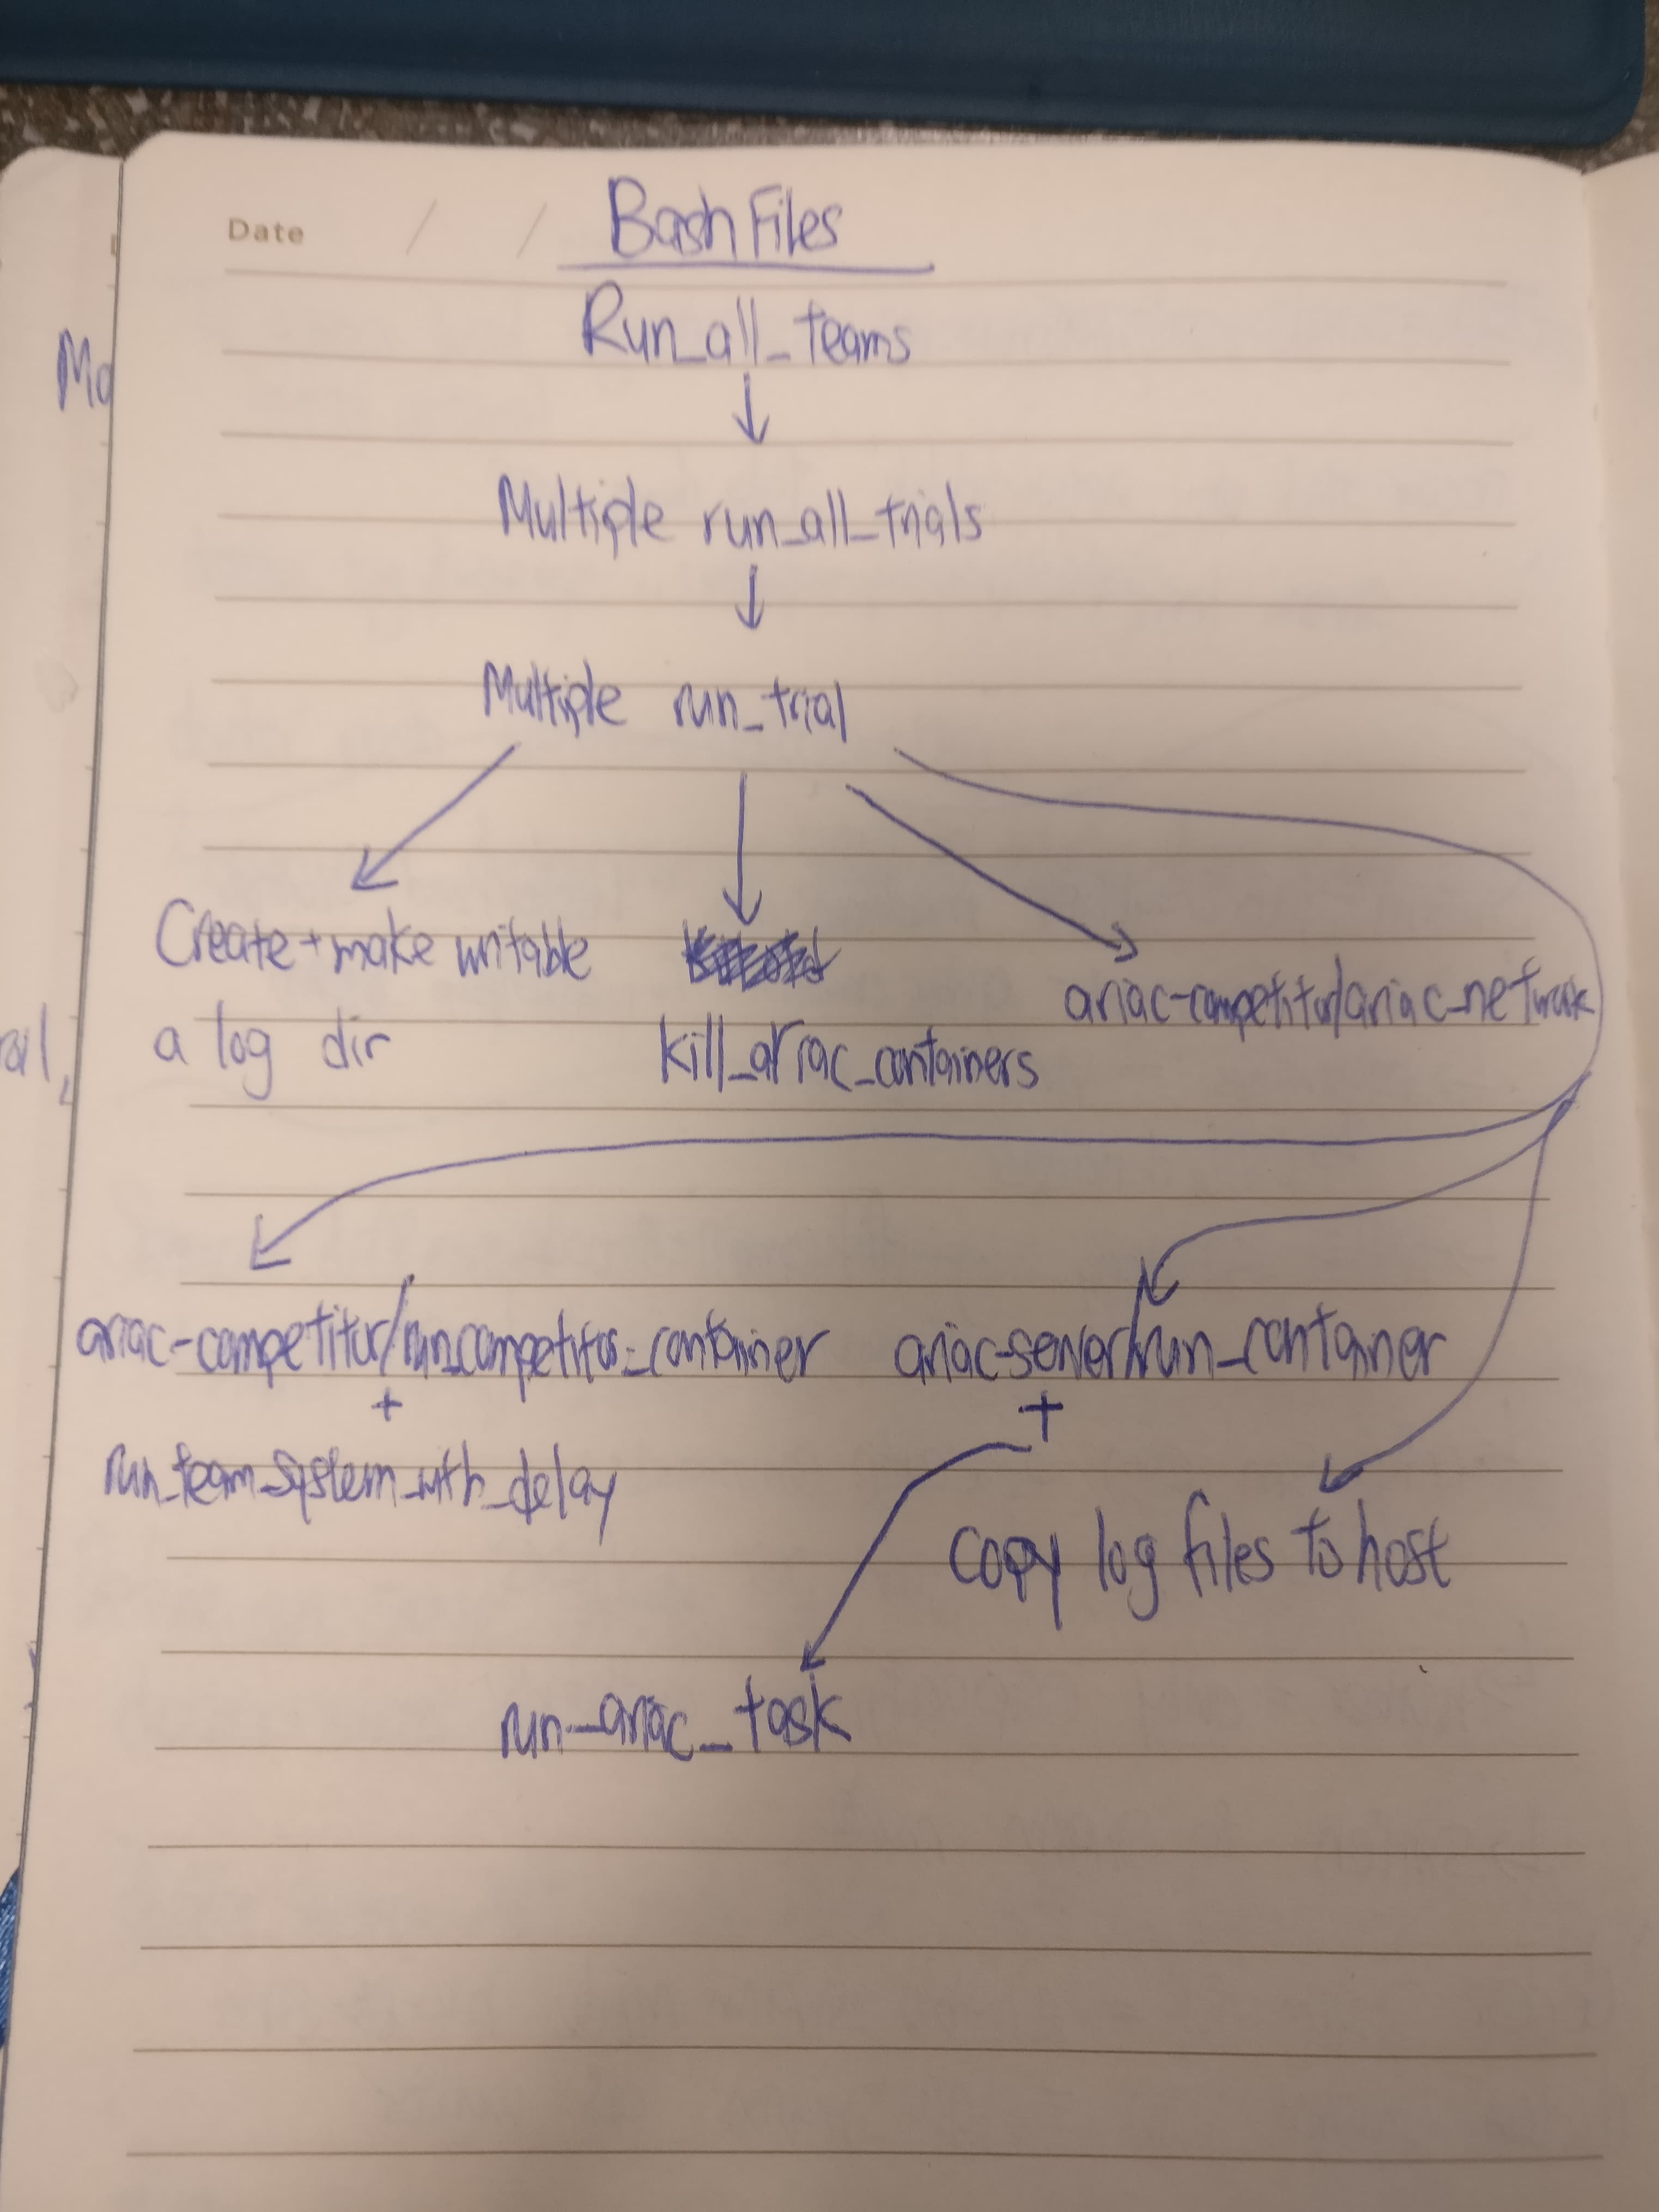 Date / /
Bash Files
Run_all_teams
Multiple run_all_trials
Multiple run_trial
Create + make writable
a log dir
kill_ariac_containers
ariac-competitor/ariac_network
ariac-competitor/run_competitor_container
+
run_team_system_with_delay
ariac-server/run_container
+
copy log files to host
run_ariac_task